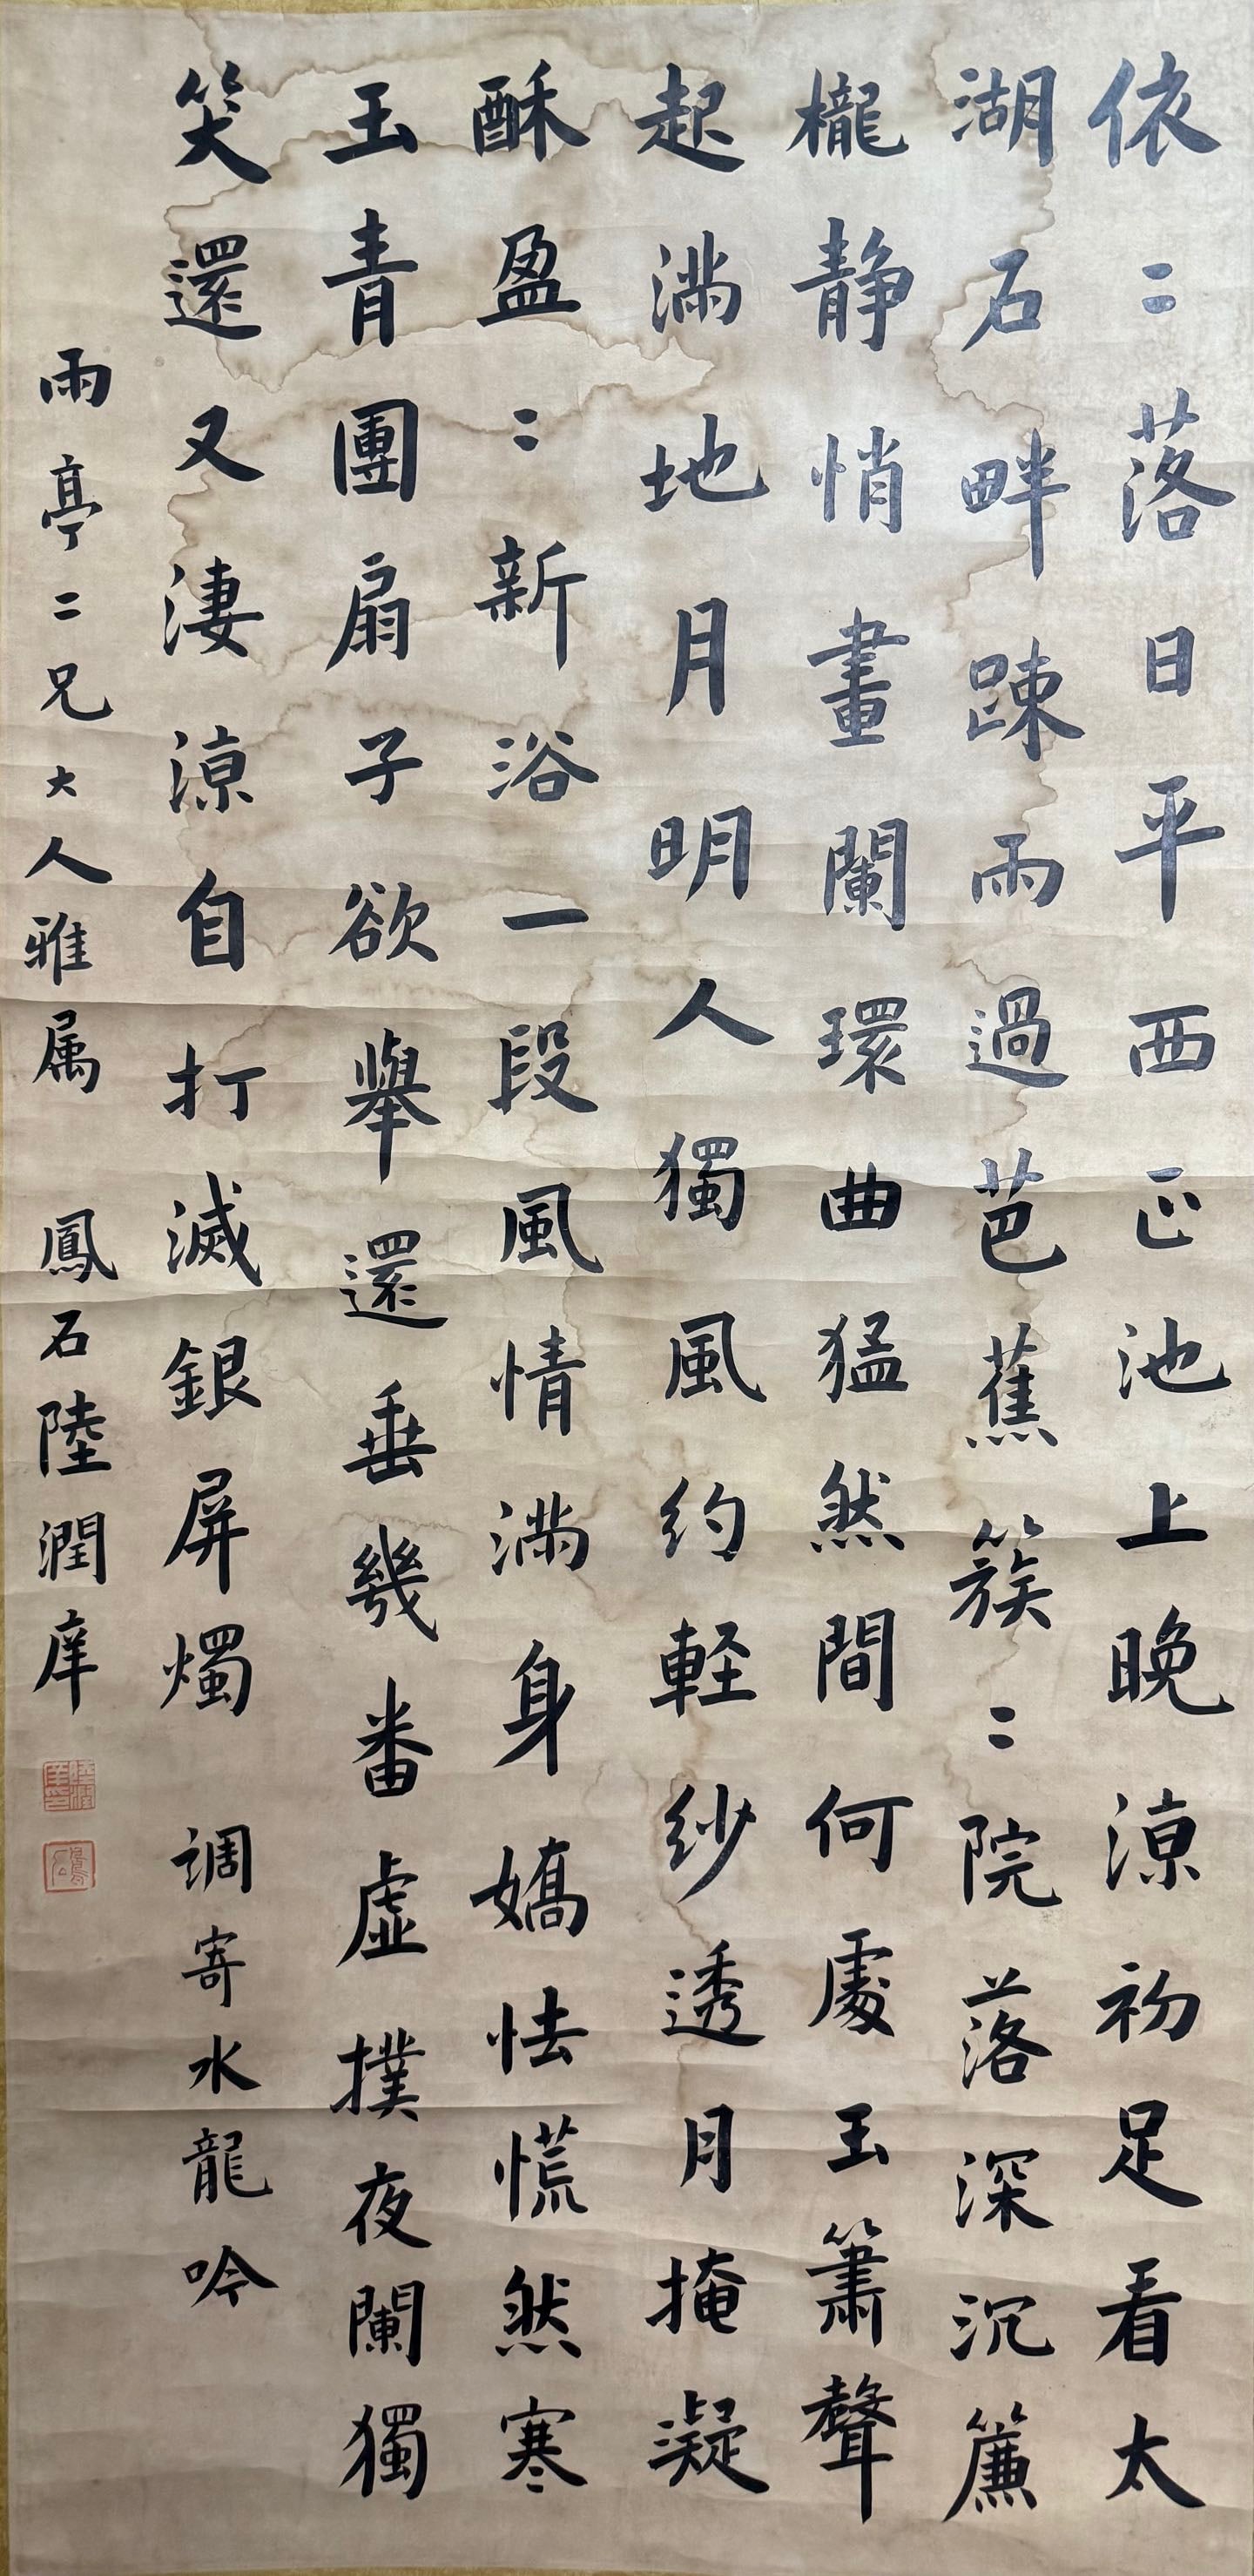 依〻落日平西正池上晚涼初足看太
湖石畔踈雨過芭蕉簇〻院落深沉簾
櫳静悄畫闌環曲猛然間何處玉簫聲
起滿地月明人獨風約輕紗透月掩凝
酥盈〻新浴一段風情滿身嬌怯慌然寒
玉青團扇子欲舉還垂幾番虛撲夜闌獨
笑還又淒涼自打滅銀屏燭 調寄水龍吟
雨亭二兄大人雅属 鳳石陸潤庠
陸潤庠印
鳳石